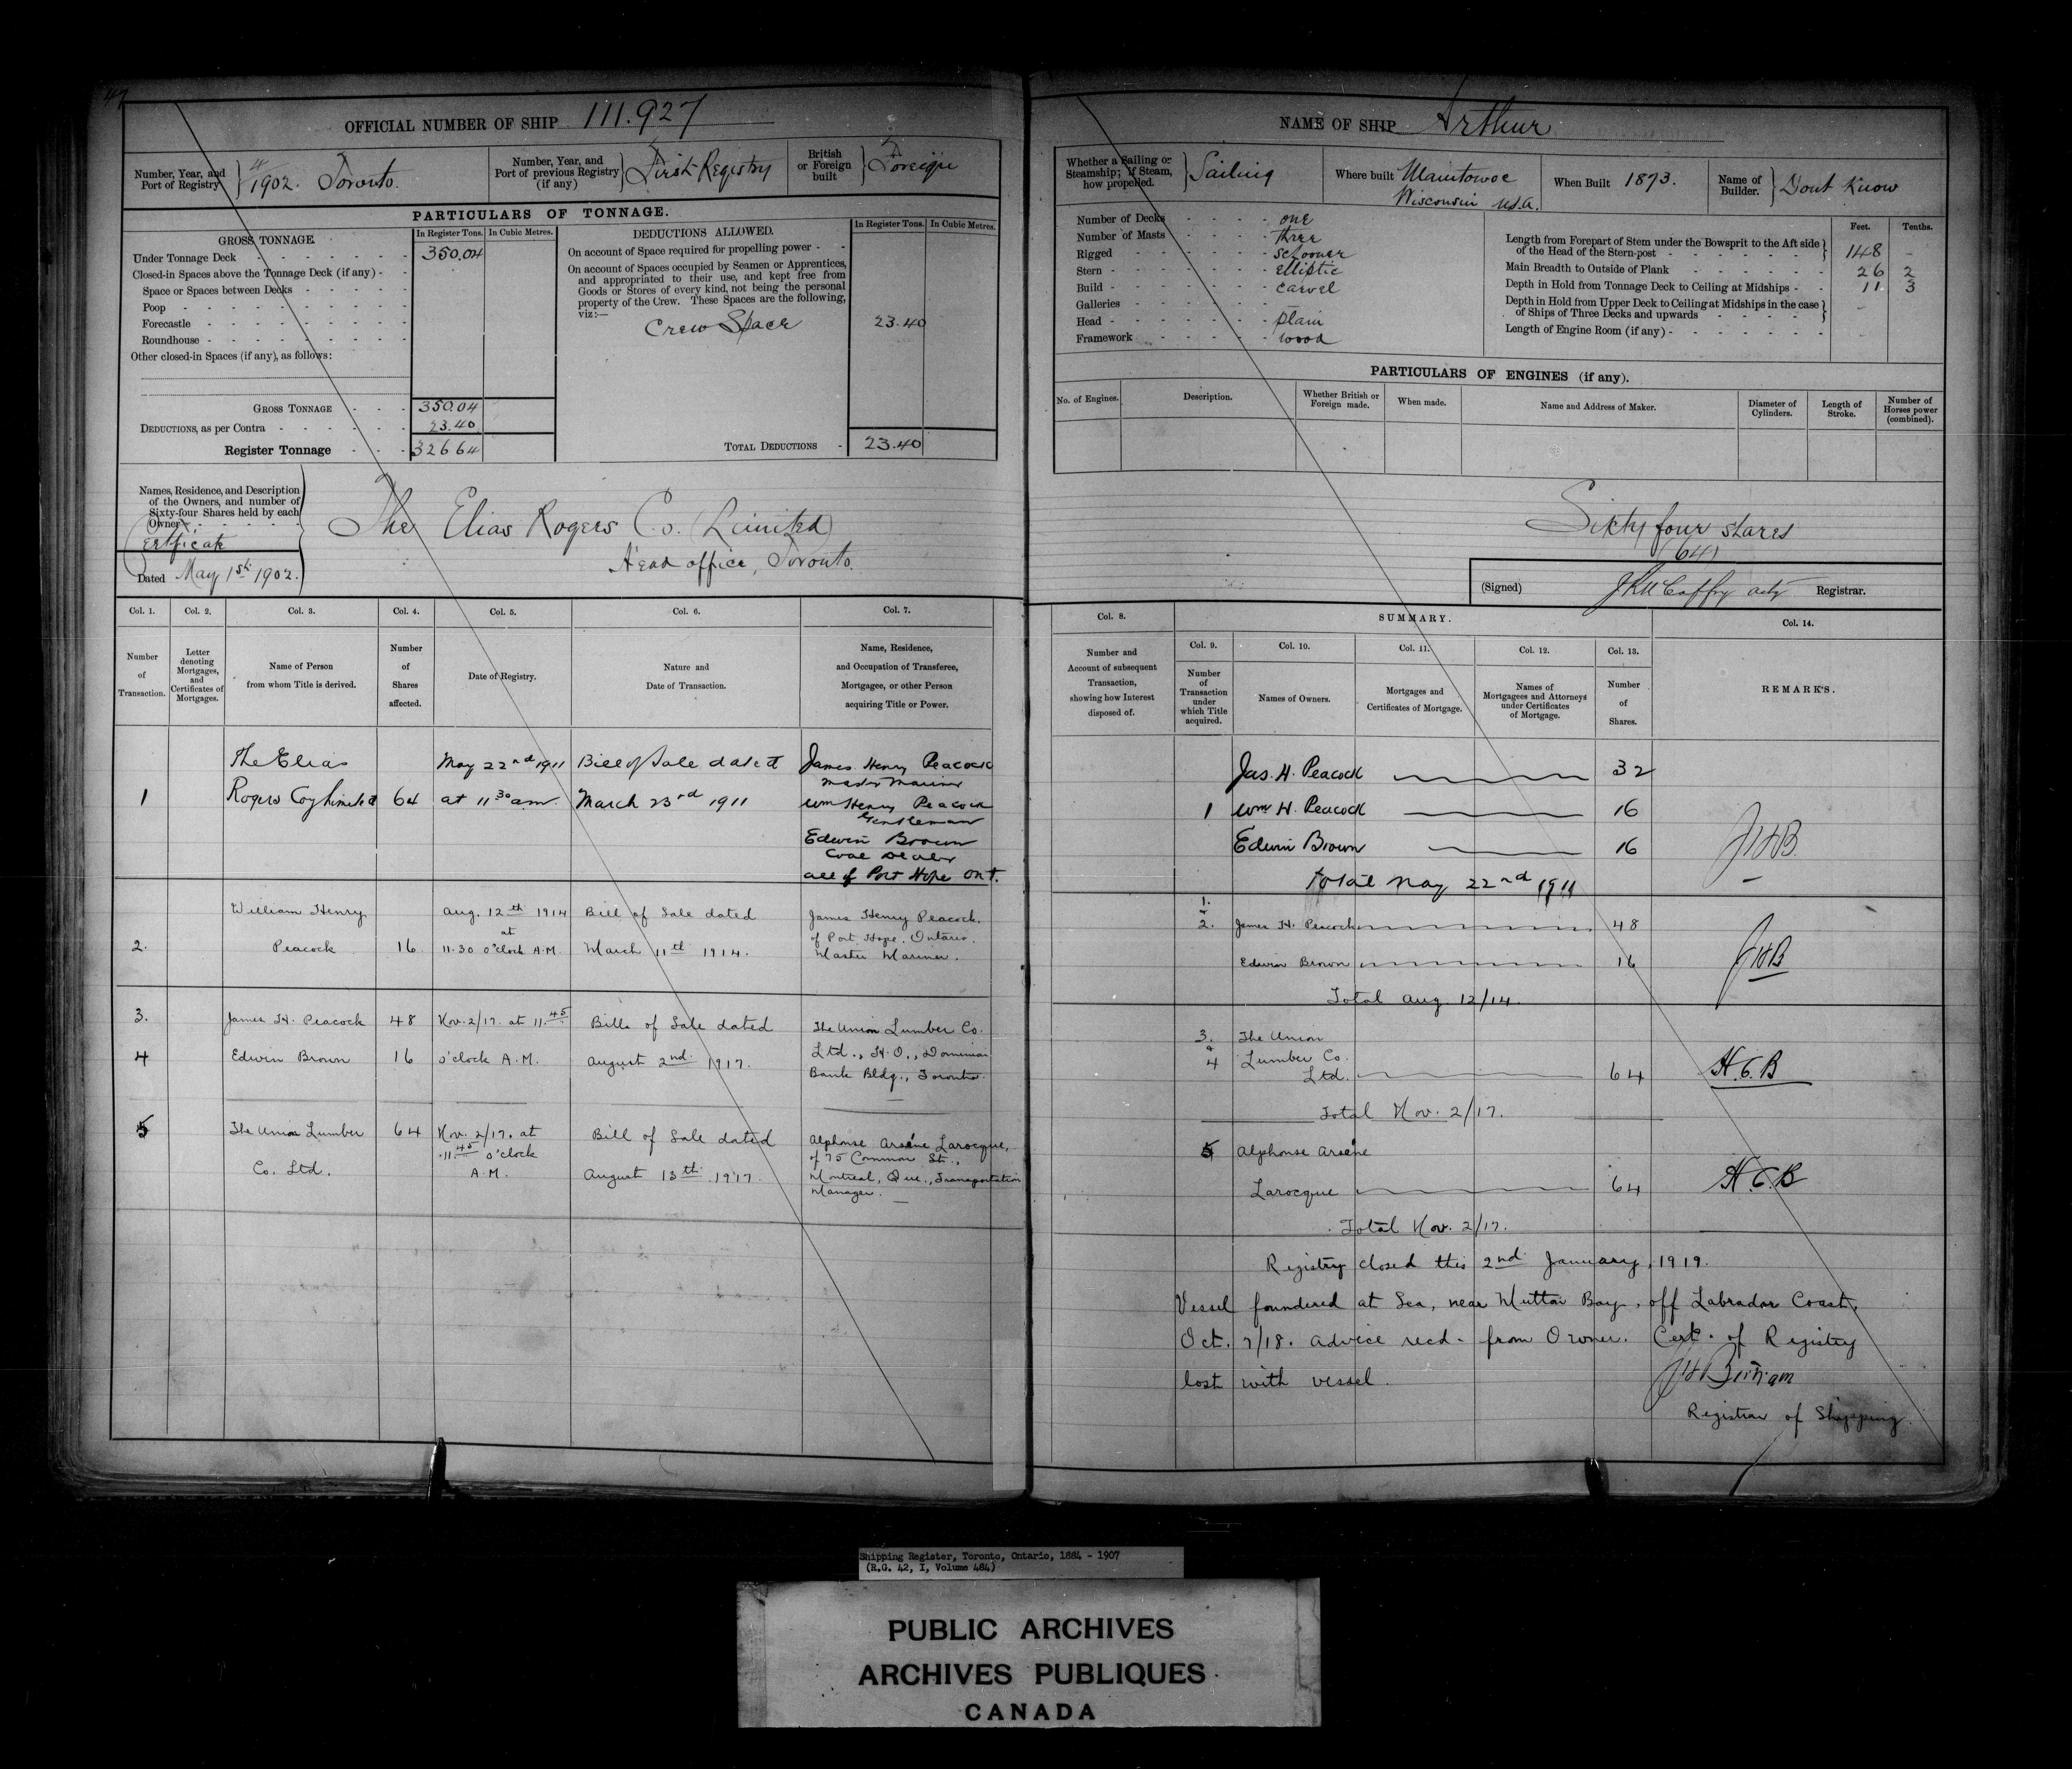 47
OFFICIAL NUMBER OF SHIP 111.927
Number, Year, and Port of Registry } 4/1902. Toronto.
Number, Year, and Port of previous Registry (if any) } First Registry
British or Foreign built } Foreign
PARTICULARS OF TONNAGE.
GROSS TONNAGE.
In Register Tons. In Cubic Metres.
Under Tonnage Deck - - - 350.04
Closed-in Spaces above the Tonnage Deck (if any) - -
Space or Spaces between Decks - - -
Poop - - -
Forecastle - - -
Roundhouse - - -
Other closed-in Spaces (if any), as follows:
GROSS TONNAGE - - - 350.04
DEDUCTIONS, as per Contra - - - 23.40
Register Tonnage - - - 326 64
DEDUCTIONS ALLOWED.
In Register Tons. In Cubic Metres.
On account of Space required for propelling power - -
On account of Spaces occupied by Seamen or Apprentices,
and appropriated to their use, and kept free from
Goods or Stores of every kind, not being the personal
property of the Crew. These Spaces are the following,
viz:—
Crew Space 23.40
TOTAL DEDUCTIONS - 23.40
Names, Residence, and Description
of the Owners, and number of
Sixty-four Shares held by each
Owner - - -
Certficate
Dated May 1st 1902.
The Elias Rogers Co. (Limited)
Head office, Toronto.
Col. 1. Col. 2. Col. 3. Col. 4. Col. 5. Col. 6. Col. 7.
Number of Transaction.
Letter denoting Mortgages, and Certificates of Mortgages.
Name of Person from whom Title is derived.
Number of Shares affected.
Date of Registry.
Nature and Date of Transaction.
Name, Residence, and Occupation of Transferee, Mortgagee, or other Person acquiring Title or Power.
The Elias May 22nd 1911 Bill of Sale dated James Henry Peacock
Master Mariner
1 Rogers Coy Limited 64 at 11 30 am March 23rd 1911 Wm Henry Peacock
Gentleman
Edwin Brown
Coal Dealer
all of Port Hope Ont.
William Henry Aug. 12th 1914 Bill of Sale dated James Henry Peacock.
at of Port Hope, Ontario.
2. Peacock 16 11.30 o'clock A.M. March 11th 1914. Master Mariner.
3. James H. Peacock 48 Nov. 2/17. at 11.45 Bills of Sale dated The Union Lumber Co.
4 Edwin Brown 16 o'clock A.M. August 2nd 1917. Ltd., H.O., Dominion
Bank Bldg., Toronto.
5 The Union Lumber 64 Nov. 2/17. at Bill of Sale dated Alphonse Arsène Larocque,
11.45 o'clock of 75 Common St.,
Co. Ltd. A.M. August 13th 1917. Montreal, Que., Transportation
Manager.
NAME OF SHIP Arthur
Whether a Sailing or Steamship; if Steam, how propelled. } Sailing
Where built Manitowoc Wisconsin U.S.A.
When Built 1873.
Name of Builder. } Dont Know
Number of Decks - - - - one
Number of Masts - - - - three
Rigged - - - - schooner
Stern - - - - elliptic
Build - - - - carvel
Galleries - - - - —
Head - - - - plain
Framework - - - - wood
Feet. Tenths.
Length from Forepart of Stem under the Bowsprit to the Aft side of the Head of the Stern-post - - - 148 -
Main Breadth to Outside of Plank - - - 26 2
Depth in Hold from Tonnage Deck to Ceiling at Midships - - 11 3
Depth in Hold from Upper Deck to Ceiling at Midships in the case of Ships of Three Decks and upwards - - -
Length of Engine Room (if any) - - -
PARTICULARS OF ENGINES (if any).
No. of Engines. Description. Whether British or Foreign made. When made. Name and Address of Maker. Diameter of Cylinders. Length of Stroke. Number of Horses power (combined).
Sixty four shares
(64)
(Signed) J K McCaffry actg Registrar.
Col. 8. SUMMARY. Col. 14.
Number and Account of subsequent Transaction, showing how Interest disposed of.
Col. 9. Col. 10. Col. 11. Col. 12. Col. 13.
Number of Transaction under which Title acquired.
Names of Owners.
Mortgages and Certificates of Mortgage.
Names of Mortgagees and Attorneys under Certificates of Mortgage.
Number of Shares.
REMARKS.
Jas. H. Peacock 32
1 Wm H. Peacock 16
Edwin Brown 16 JHB.
Total May 22nd 1911
1.
2. James H. Peacock 48
Edwin Brown 16 JHB
Total Aug. 12/14.
3. The Union
&
4 Lumber Co.
Ltd. 64 H.C.B
Total Nov. 2/17.
5 Alphonse Arsène
Larocque 64 H.C.B
Total Nov. 2/17.
Registry closed this 2nd January, 1919.
Vessel foundered at Sea, near Mutton Bay, off Labrador Coast,
Oct. 7/18. Advice recd. from Owner. Cert. of Registry
lost with vessel.
Registrar of Shipping.
Shipping Register, Toronto, Ontario, 1884 - 1907
(R.G. 42, I, Volume 484)
PUBLIC ARCHIVES
ARCHIVES PUBLIQUES
CANADA